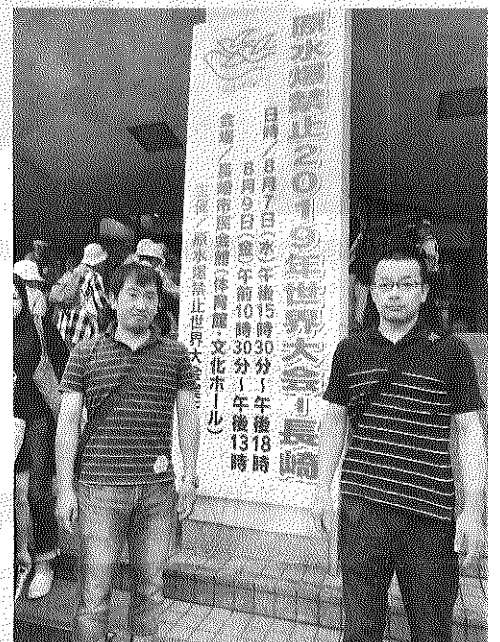 原水爆禁止2019年世界大会－長崎
日時／8月7日(水)午後15時30分～午後18時
8月9日(金)午前10時30分～午後13時
会場／長崎市民会館(体育館・文化ホール)
主催／原水爆禁止世界大会